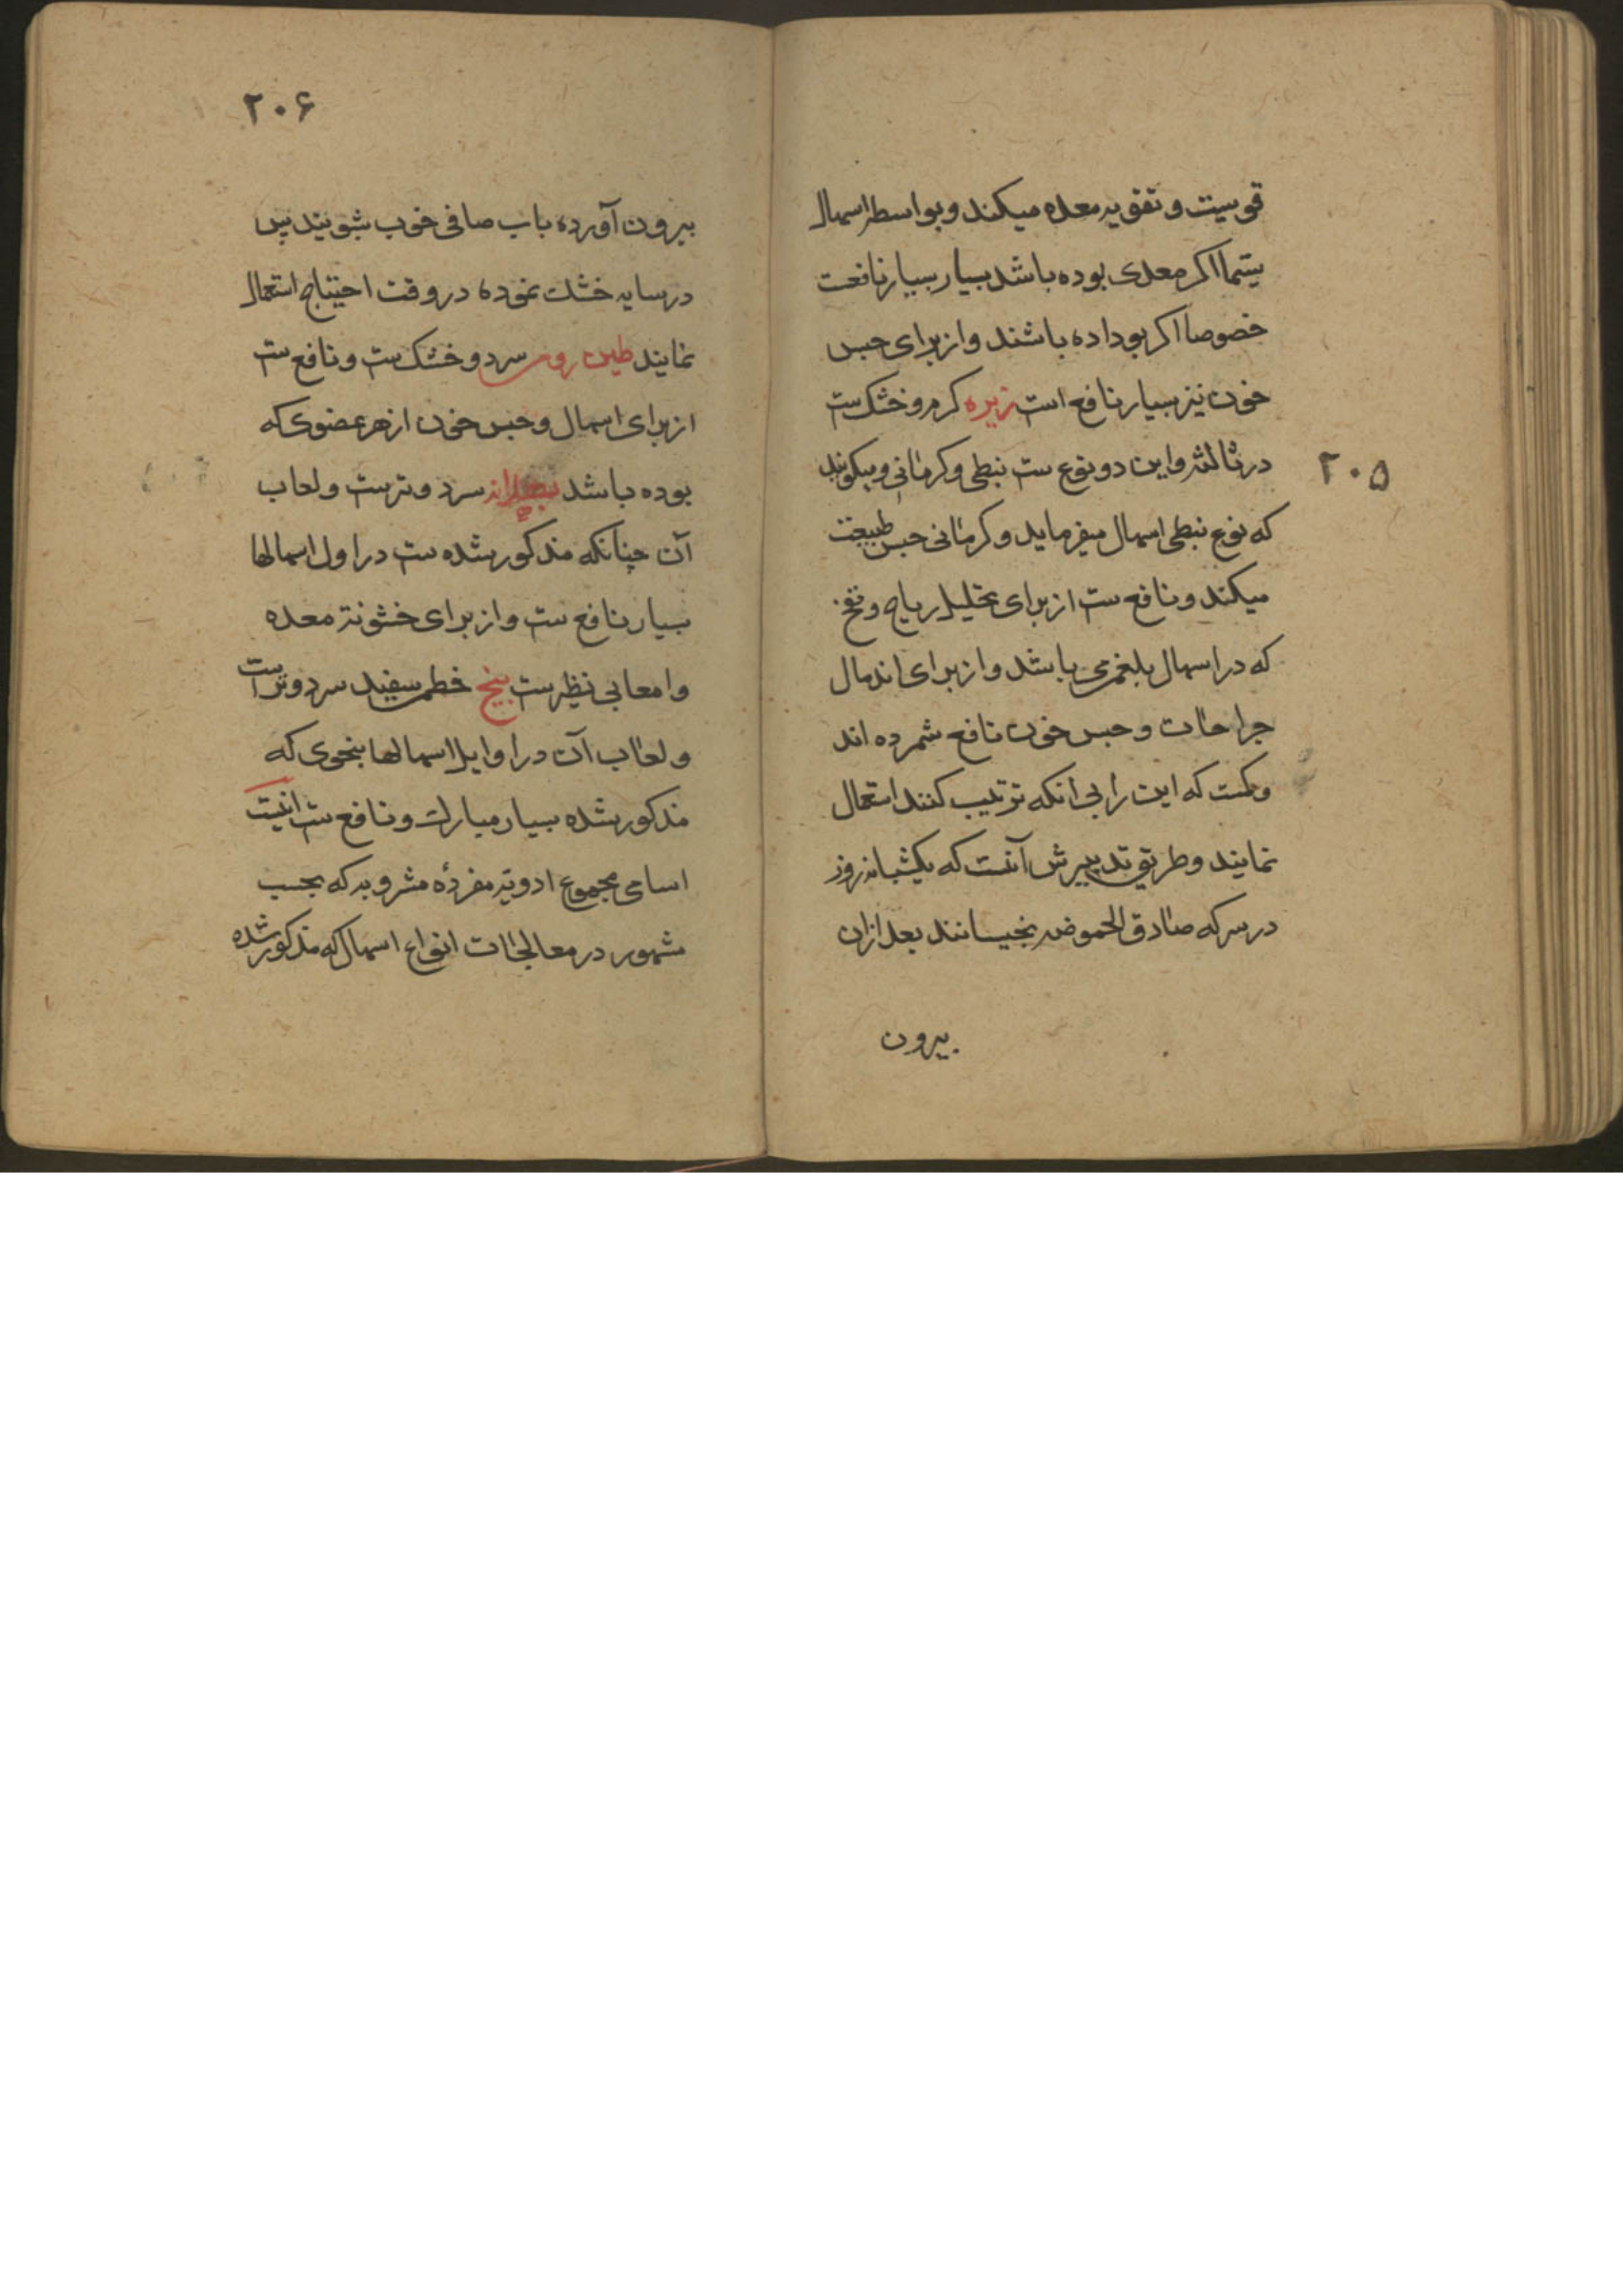 قویست و تقویه معده میکند و بواسطه اسهال
سیما اکر معدی بوده باشد بسیار بسیار نافعست
خصوصا اکر بو داده باشند و از برای حبس
خون نیز بسیار نافع است زیره کرم و خشک ست
در ثالثه و این دو نوع ست نبطی و کرمانی و میکویند
که نوع نبطی اسهال میفرماید و کرمانی حبس طبیعت
میکند و نافع ست از برای تحلیل ریاح و نفخ
که در اسهال بلغمی باشد و از برای اندمال
جراحات و حبس خون نافع شمرده اند
که این را بی انکه ترتیب کنند استعمال
نمایند و طریق تدبیرش آنست که یکشبانه روز
در سرکه صادق الحموضه بخیسانند بعد ازان
بیرون
۲۰۵
۲۰۶
بیرون آورده باب صافی خوب بشویند پس
در سایه خشک نموده در وقت احتیاج استعمال
نمایند طین رومی سرد و خشک ست و نافع ست
از برای اسهال و حبس خون از هر عضوی که
بوده باشد سرد و ترست و لعاب
آن چنانکه مذکور شده ست در اول اسهالها
بسیار نافع ست و از برای خشونة معده
و امعا بی نظیر ست بیخ خطمی سفید سرد و تر است
و لعاب آن در اوایل اسهالها بنحوی که
مذکور شده بسیار مبارک و نافع ست اینست
اسامی مجموع ادویه مفردۀ مشروبه که بحسب
مشهور در معالجات انواع اسهال که مذکور شده